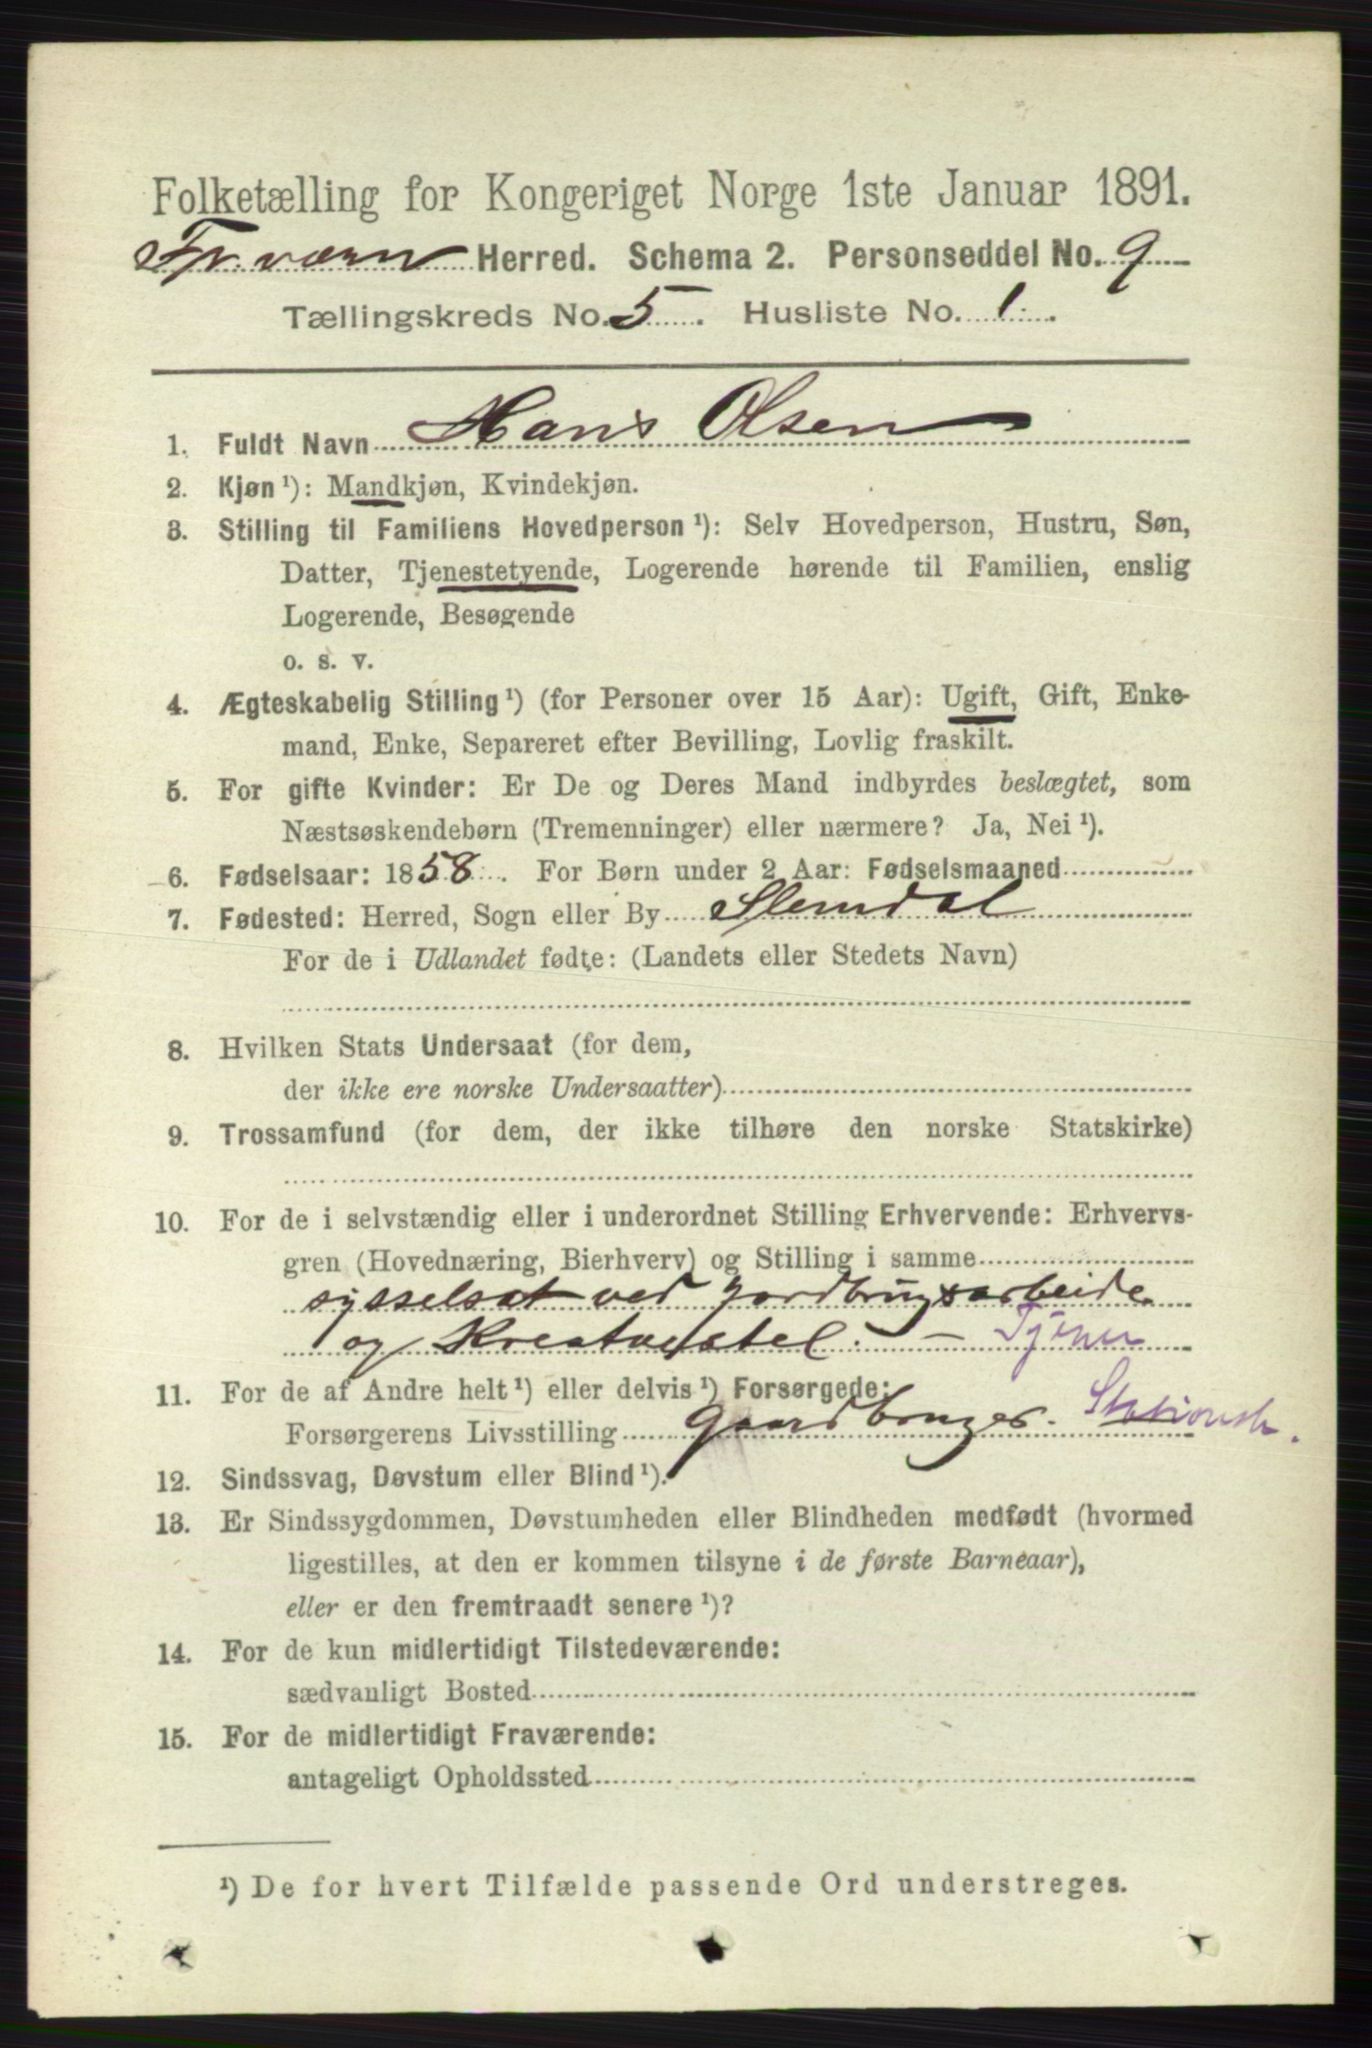 Folketælling for Kongeriget Norge 1ste Januar 1891.
Fr.værn Herred. Schema 2. Personseddel No. 9
Tællingskreds No. 5. Husliste No. 1.
1. Fuldt Navn Hans Olsen
2. Kjøn¹): Mandkjøn, Kvindekjøn.
3. Stilling til Familiens Hovedperson¹): Selv Hovedperson, Hustru, Søn,
Datter, Tjenestetyende, Logerende hørende til Familien, enslig
Logerende, Besøgende
o. s. v.
4. Ægteskabelig Stilling¹) (for Personer over 15 Aar): Ugift, Gift, Enke-
mand, Enke, Separeret efter Bevilling, Lovlig fraskilt.
5. For gifte Kvinder: Er De og Deres Mand indbyrdes beslægtet, som
Næstsøskendebørn (Tremenninger) eller nærmere? Ja, Nei¹).
6. Fødselsaar: 1858. For Børn under 2 Aar: Fødselsmaaned
7. Fødested: Herred, Sogn eller By Slemdal
For de i Udlandet fødte: (Landets eller Stedets Navn)
8. Hvilken Stats Undersaat (for dem,
der ikke ere norske Undersaatter)
9. Trossamfund (for dem, der ikke tilhøre den norske Statskirke)
10. For de i selvstændig eller i underordnet Stilling Erhvervende: Erhvervs-
gren (Hovednæring, Bierhverv) og Stilling i samme
sysselsat ved Jordbrugsarbeide
og Kreaturstel. - Tjener
11. For de af Andre helt¹) eller delvis¹) Forsørgede:
Forsørgerens Livsstilling Gaardbruger.
12. Sindssvag, Døvstum eller Blind¹).
13. Er Sindssygdommen, Døvstumheden eller Blindheden medfødt (hvormed
ligestilles, at den er kommen tilsyne i de første Barneaar),
eller er den fremtraadt senere¹)?
14. For de kun midlertidigt Tilstedeværende:
sædvanligt Bosted
15. For de midlertidigt Fraværende:
antageligt Opholdssted
¹) De for hvert Tilfælde passende Ord understreges.